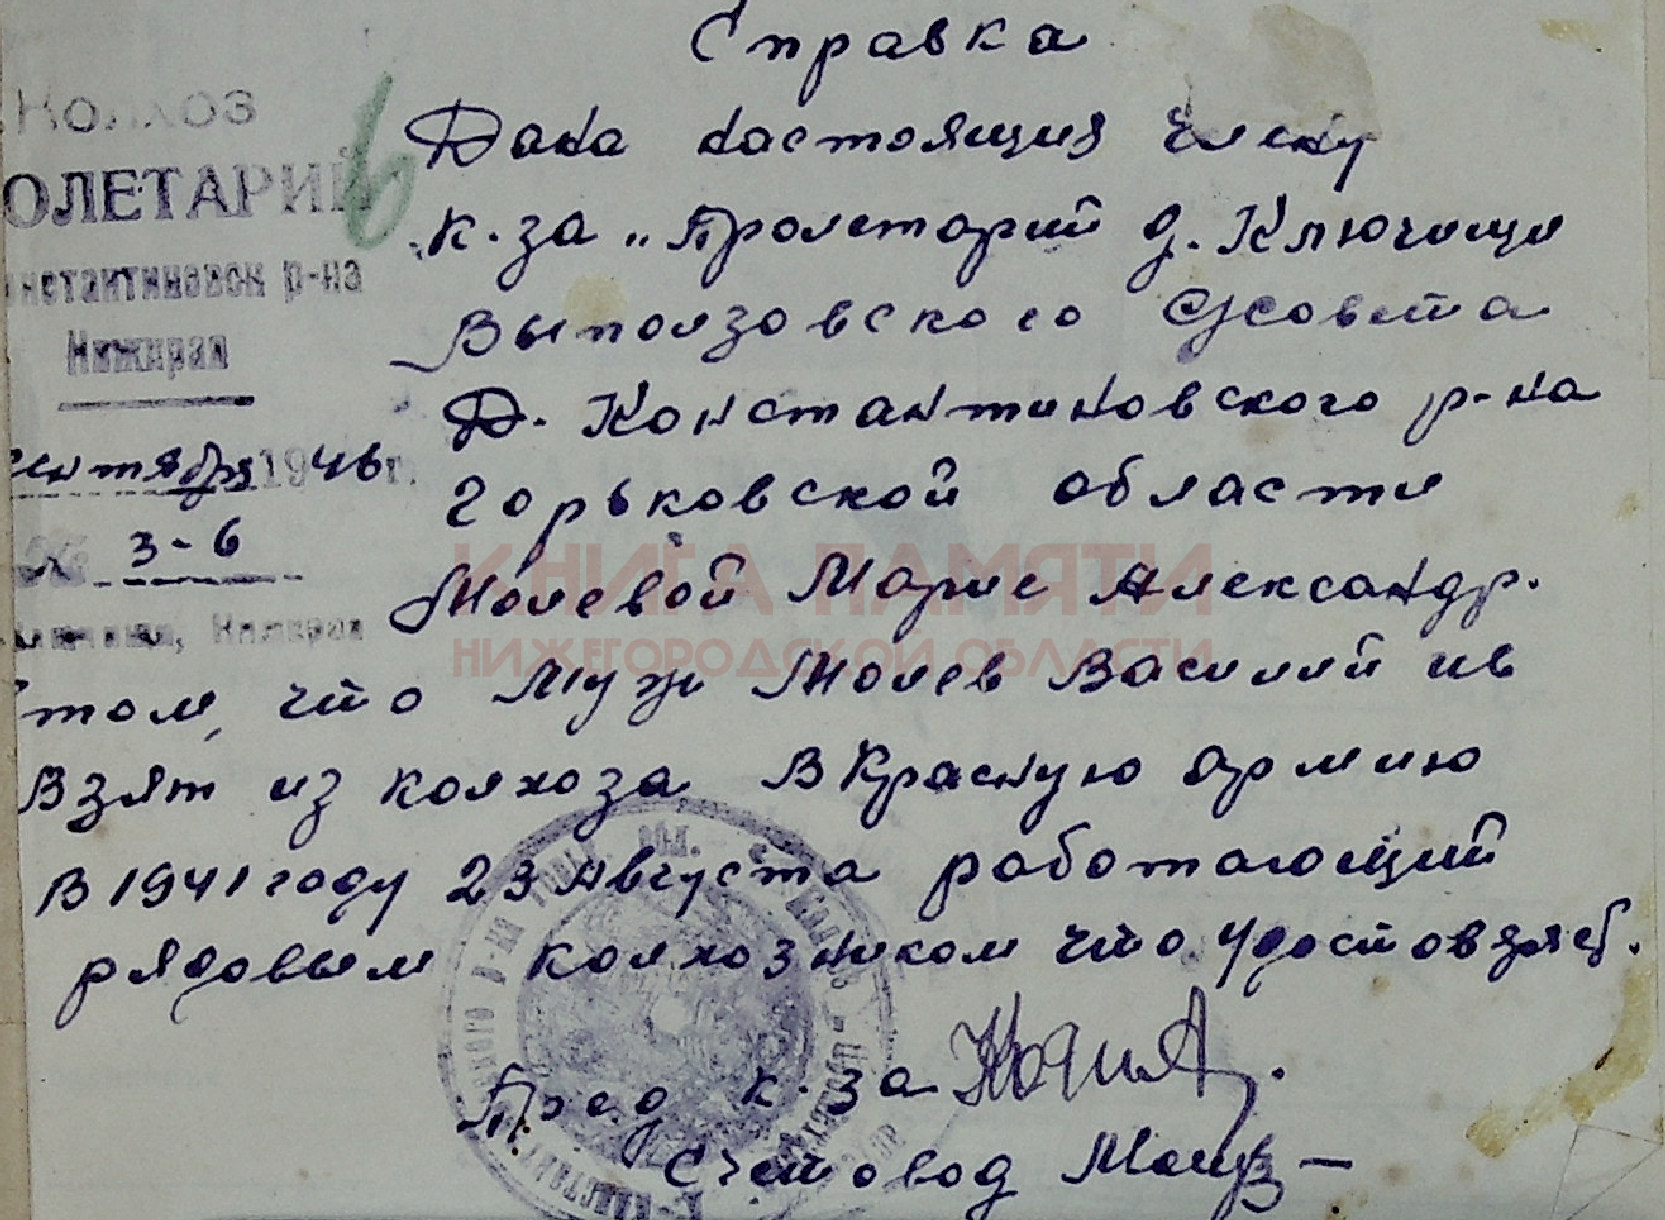 Справка
Колхоз
ОЛЕТАРИЙ
нстантиновск р-на
Нижкрая
ентября 1946 г.
3-6
6
Дана настоящия члену
к-за „Пролетарий д. Ключищи
Выползовского с/совета
Д. Константиновского р-на
Горьковской области
Молевой Марие Александр.
том, что Муж Молев Василий ив
Взят из колхоза В Красную Армию
В 1941 году 23 Августа работающий
рядовым колхозником что Удостовряеб.
Пред к-за
Счетовод
КНИГА ПАМЯТИ
НИЖЕГОРОДСКОЙ ОБЛАСТИ